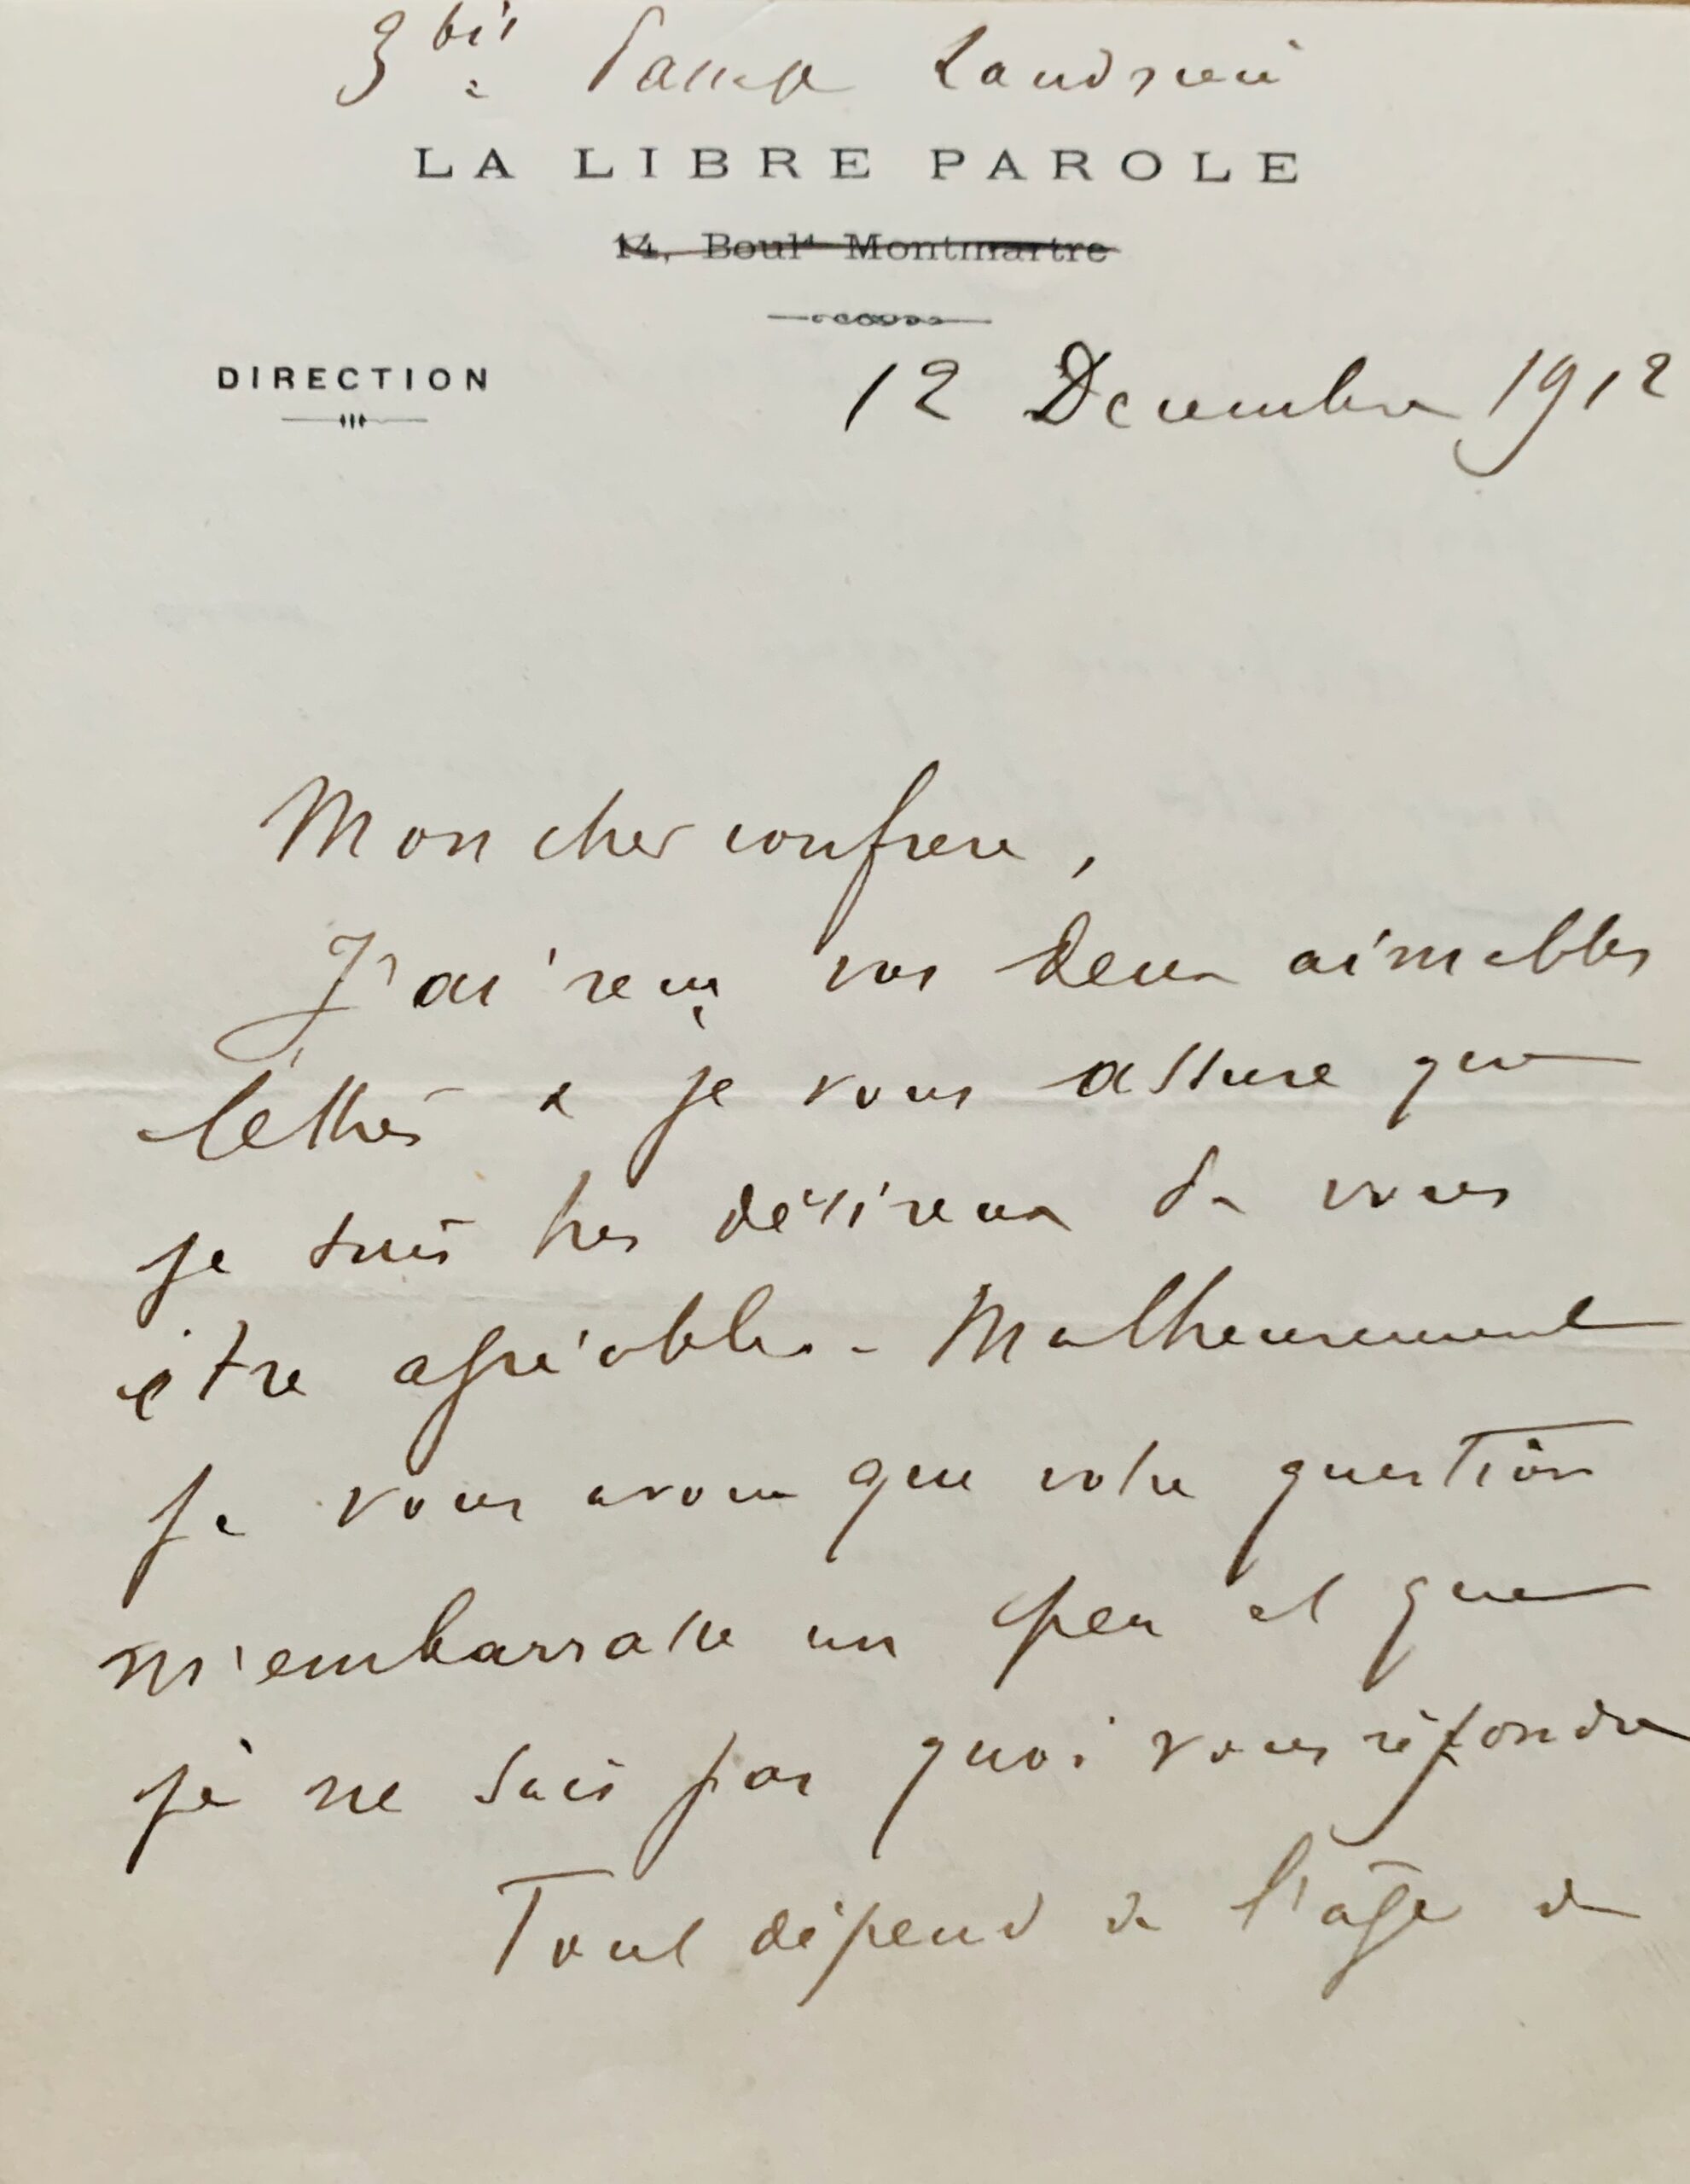 3 bis Passage Landrieu
LA LIBRE PAROLE
14, Boul^d Montmartre
DIRECTION
12 Decembre 1912
Mon cher confrere,
J'ai reçu vos deux aimables
lettres & je vous assure que
je suis tres désireux de vous
être agréable. - Malheureusement
je vous avoue que votre question
m'embarrasse un peu et que
je ne sais pas quoi vous répondre
Tout dépend de l'âge de